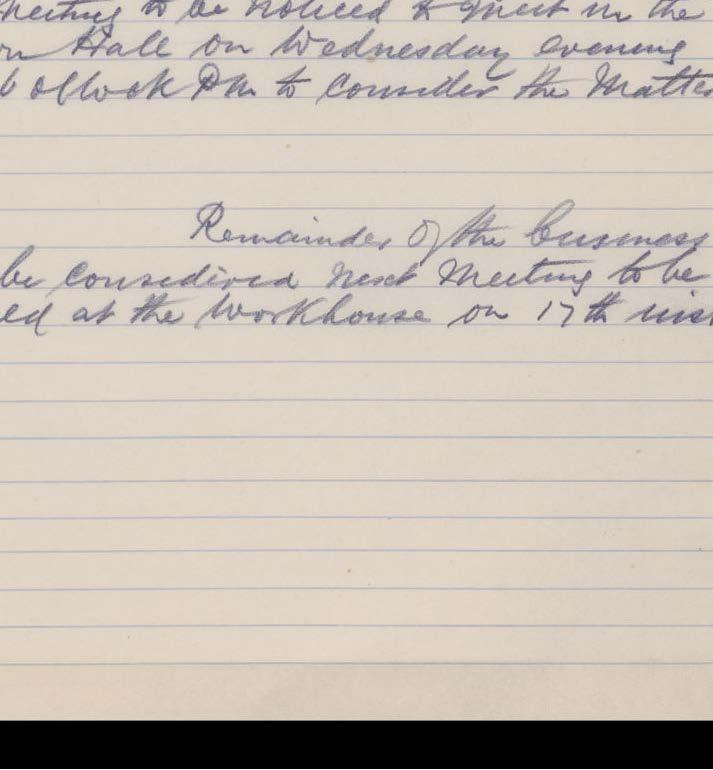 meeting to be noticed to meet in the
on Hall on Wednesday evening
6 oClock Pm to consider the Matter
Remainder of the business
be considired next Meeting to be
ed at the Workhouse on 17th inst